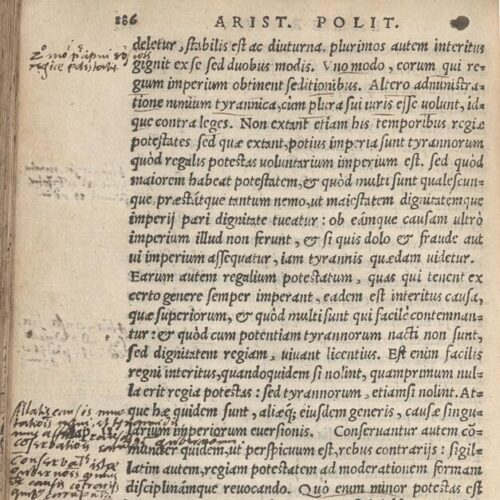 186 ARIST. POLIT.
deletur, stabilis est ac diuturna. plurimos autem interitus
gignit ex se sed duobus modis. Vno modo, eorum qui re-
gium imperium obtinent seditionibus. Altero administra-
tione nimium tyrannica, cùm plura sui iuris esse volunt, id-
que contra leges. Non extant etiam his temporibus regiæ
potestates sed quæ extant, potius imperia sunt tyrannorum
quòd regalis potestas voluntarium imperium est, sed quòd
maiorem habeat potestatem, & quòd multi sunt qualescun-
que, præstátque tantum nemo, ut maiestatem dignitatemque
imperij pari dignitate tueatur: ob eámque causam ultrò
imperium illud non ferunt, & si quis dolo & fraude aut
ui imperium assequatur, iam tyrannis quædam uidetur.
Earum autem regalium potestatum, quas qui tenent ex
certo genere semper imperant, eadem est interitus causa,
quæ superiorum, & quòd multi sunt qui facilè contemnan-
tur: & quòd cum potentiam tyrannorum nacti non sunt,
sed dignitatem regiam, uiuant licentius. Est enim facilis
regni interitus, quandoquidem si nolint, quamprimum nul-
la erit regia potestas: sed tyrannorum, etiamsi nolint. At-
que hæ quidem sunt, aliæq; eiusdem generis, causæ singu-
larium imperiorum euersionis. Conseruantur autem co-
muniter quidem, ut perspicuum est, rebus contrarijs: sigil-
latim autem, regiam potestatem ad moderationem sermam
disciplinámque reuocando. Quò enim minor potestas est